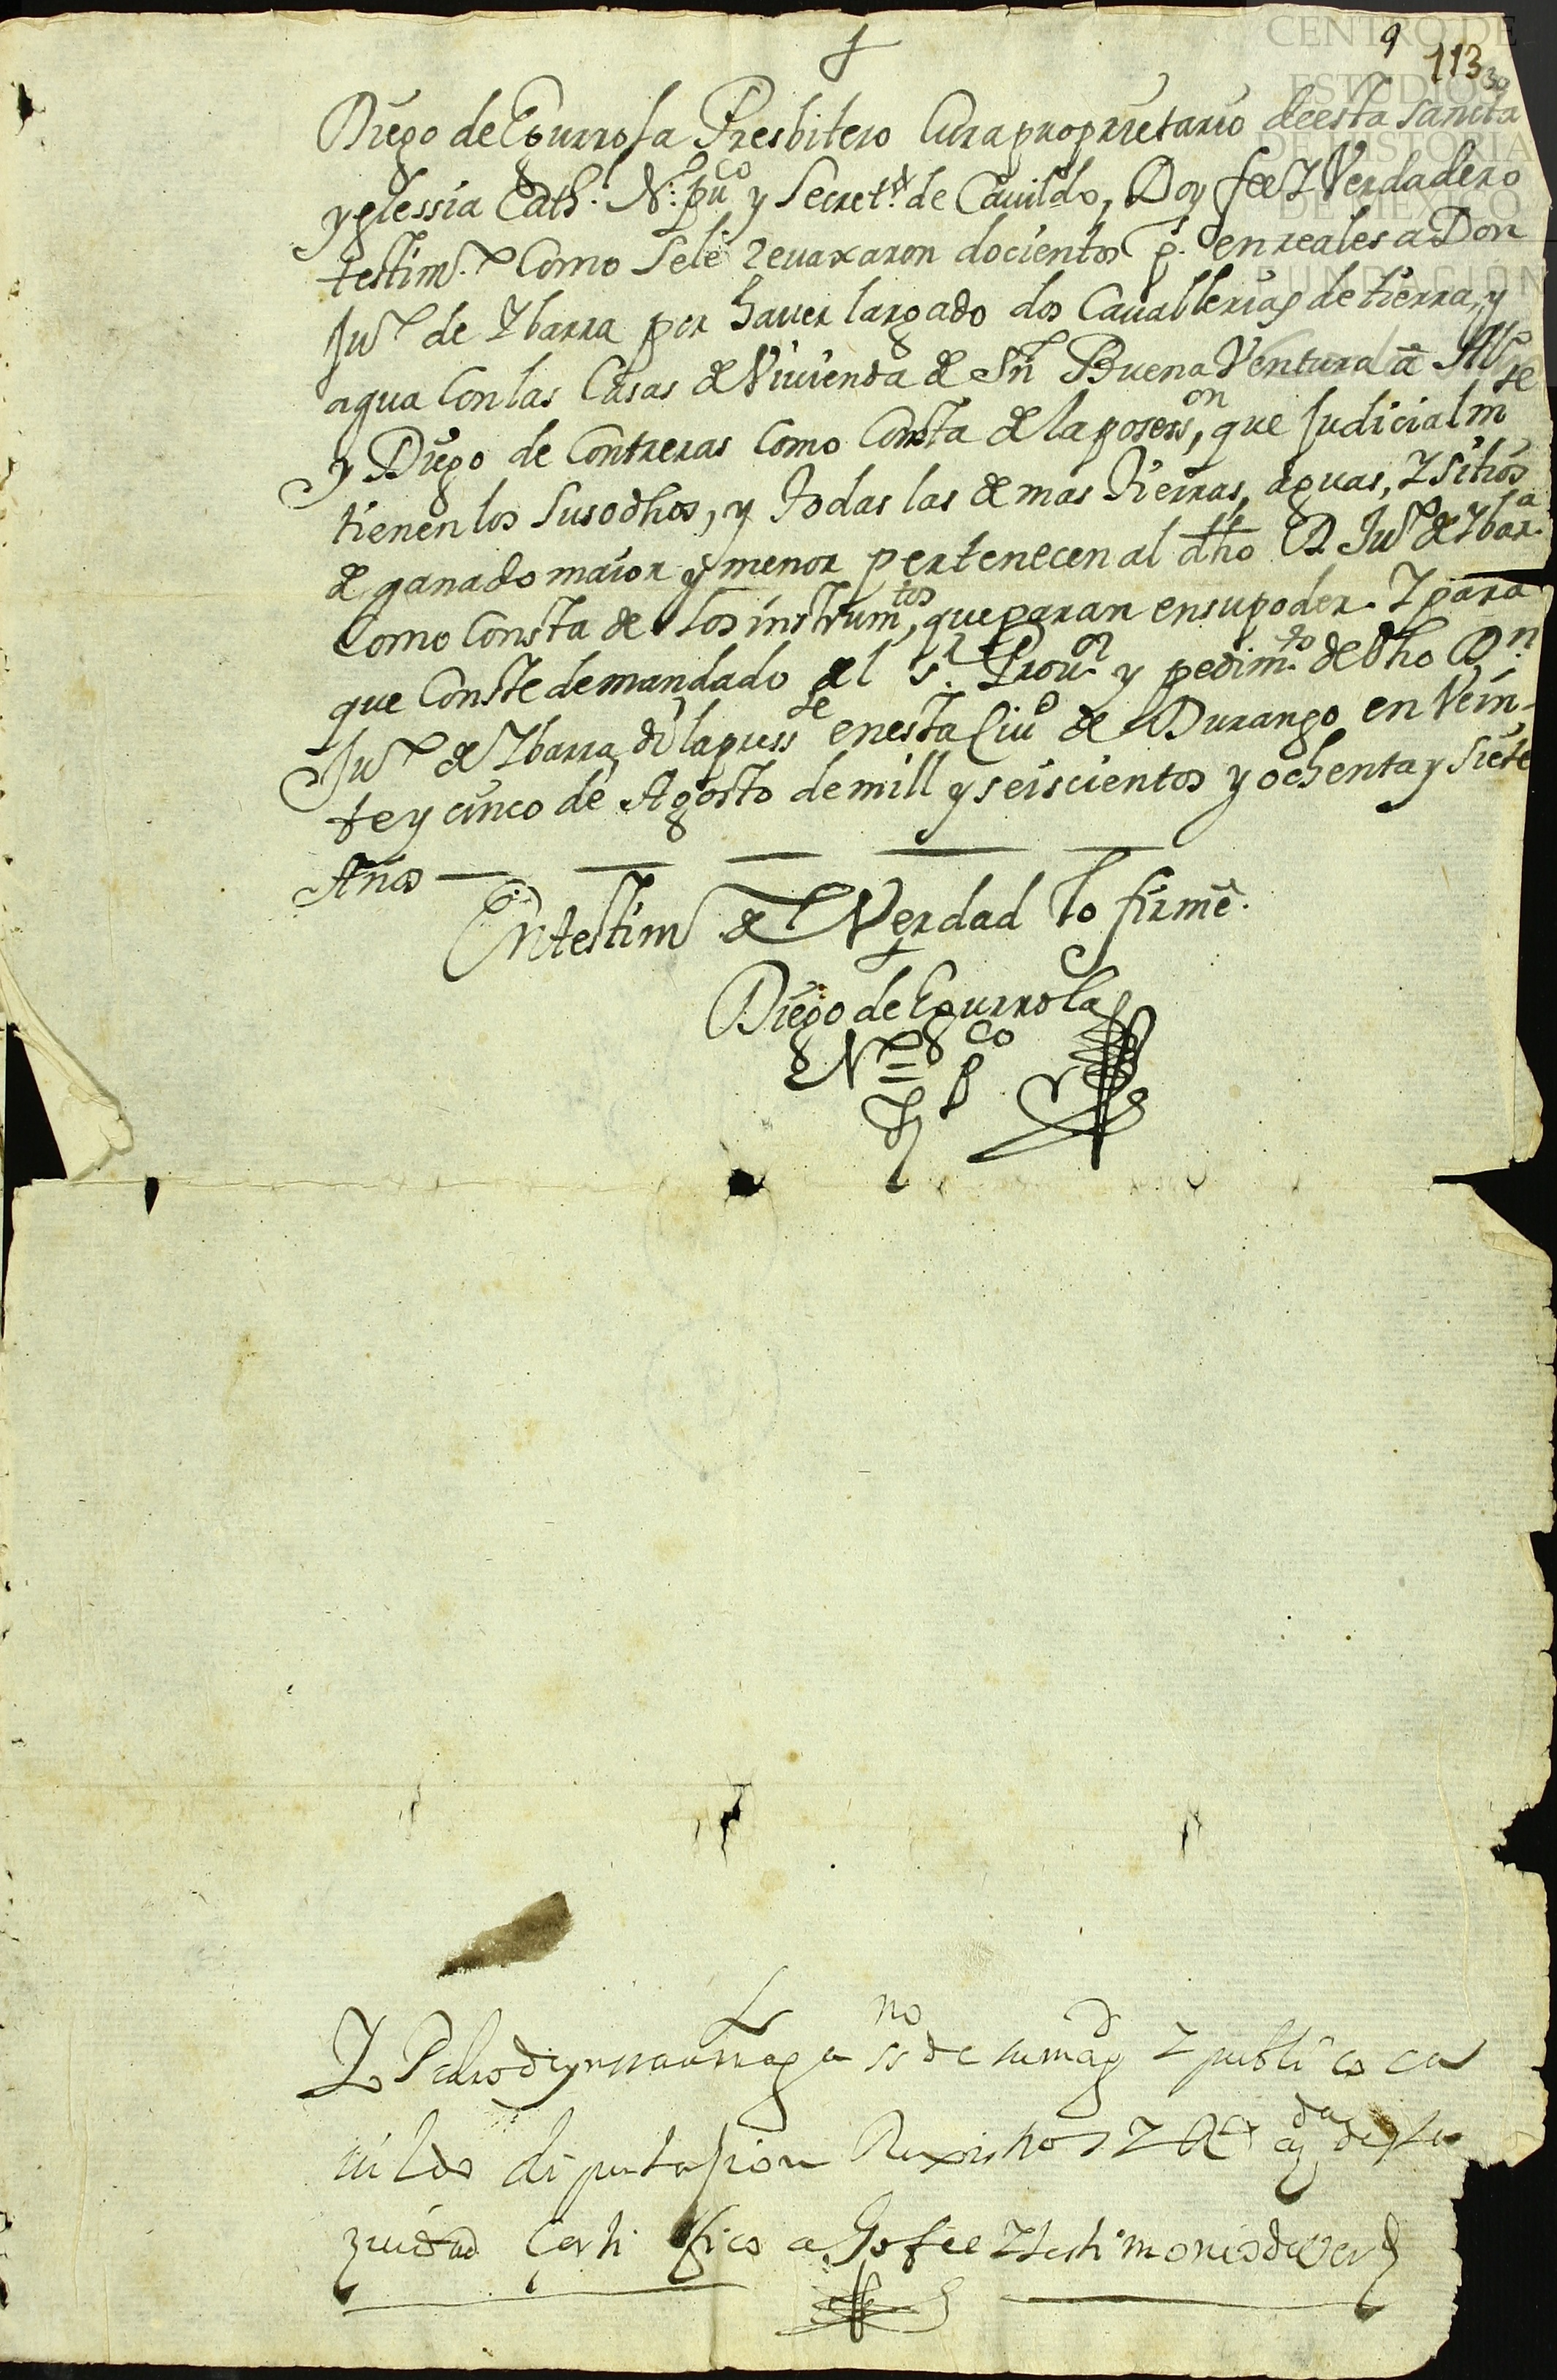 9 113
CENTRO DE
ESTUDIOS
DE HISTORIA
DE MEXICO
FUNDACIÓN
Diego de Egurrola Presbitero Cura proprietario de esta sancta
yglessia Cath. N: pu^co y Secret. de Cauildo, Doy fee Y Verdadero
testim.^o Como sele revaxaron docientos p. en reales a Don
Ju^o de Ybarra por hauer largado dos Cauallerias de tierra, y
agua con las Casas de Viuienda de Sn Buena Ventura a Al^o
y Diego de Contreras Como Consta de la posess^on, que Judicialm^te
tienen los susodhos, y todas las demas tierras, aguas, Y sitios
de ganado maior y menor pertenecen al dho D Ju^o de Ybar^a
Como Consta de los instrum^tos, que paran en su poder. Y para
que Conste de mandado del S^r Prou^or y pedim^to de dho D^n
Ju^o de Ybarra di la press^te en esta Ciu^d de Durango en Vein-
te y cinco de Agosto de mill y seiscientos y ochenta y siete
Años
En testim^o de Verdad lo firmé.
Diego de Egurrola
N^o P^co
Yo Pedro de ss^no de su mag^d Y publico ca
uildo diputasion Rexistros Y desta
ziudad Certifico doi fee Y testimonio de verd